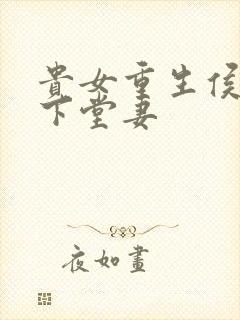 貴女重生侯
下堂妻
夜如畫